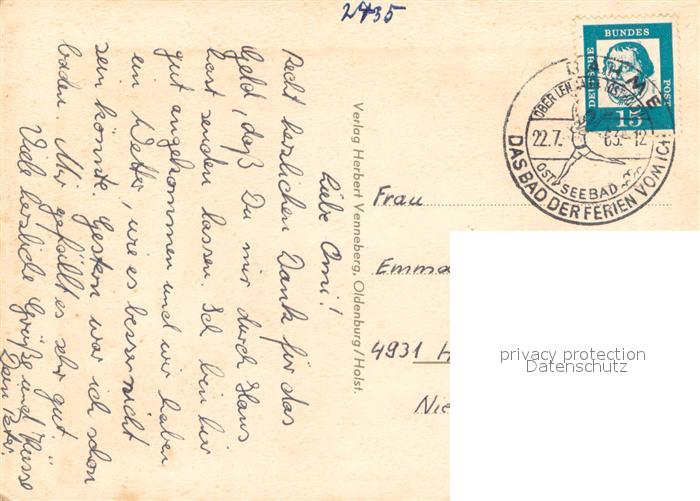 2435
Liebe Omi!
Recht herzlichen Dank für das
Geld, daß Du mir durch Klaus
hast senden lassen. Ich bin hier
gut angekommen und wir haben
ein Wetter, wie es besser nicht
sein könnte. Gestern war ich schon
baden. Mir gefällt es sehr gut.
Viele herzliche Grüße und Küsse
Dein Peter.
Verlag Herbert Venneberg, Oldenburg/Holst.
DEUTSCHE
BUNDES
POST
15
DAHME
ÜBER LENSAHN (HOLST)
22.7. 63.-12
OSTSEEBAD
DAS BAD DER FERIEN VOM ICH
Frau
Emma
4931 H
Nie
privacy protection
Datenschutz